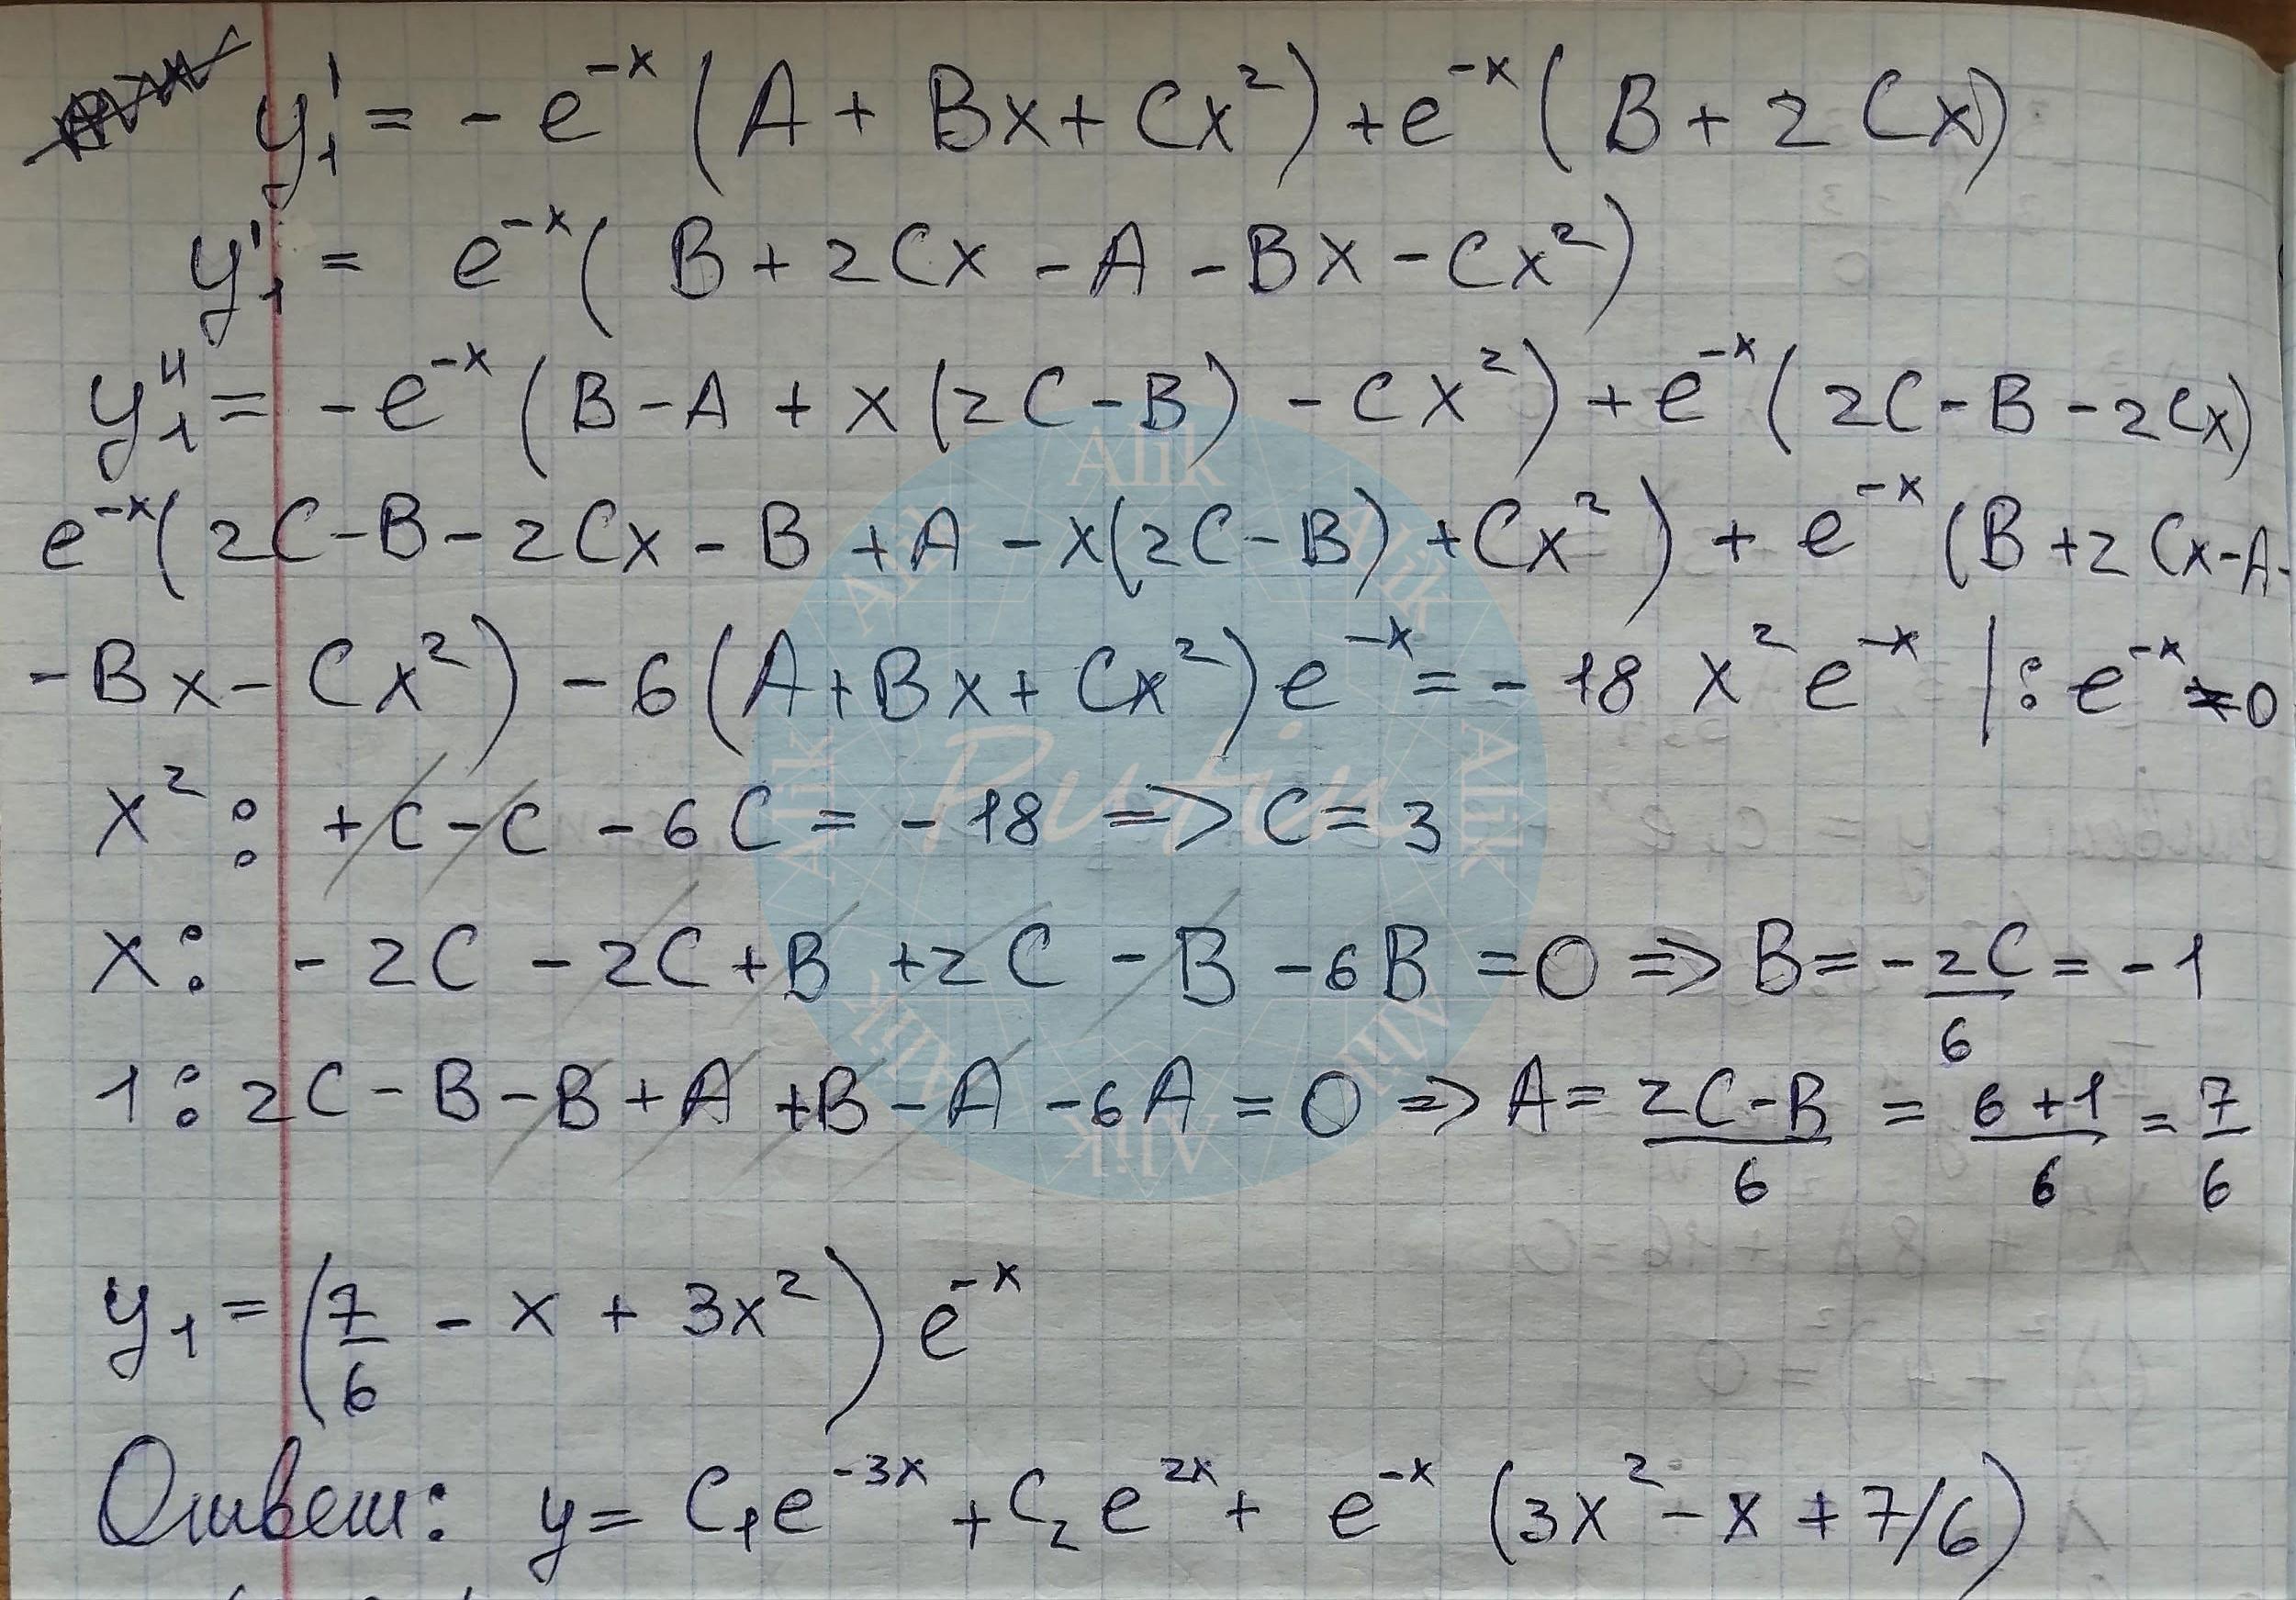 y₁' = - e⁻ˣ (A + Bx + Cx²) + e⁻ˣ (B + 2Cx)
y₁' = e⁻ˣ (B + 2Cx - A - Bx - Cx²)
y₁'' = - e⁻ˣ (B - A + x(2C - B) - Cx²) + e⁻ˣ (2C - B - 2Cx)
e⁻ˣ (2C - B - 2Cx - B + A - x(2C - B) + Cx²) + e⁻ˣ (B + 2Cx - A -
- Bx - Cx²) - 6(A + Bx + Cx²) e⁻ˣ = - 18 x² e⁻ˣ | : e⁻ˣ ≠ 0
x² : + C - C - 6C = - 18 => C = 3
x : - 2C - 2C + B + 2C - B - 6B = 0 => B = - 2C/6 = - 1
1 : 2C - B - B + A + B - A - 6A = 0 => A = (2C - B)/6 = (6 + 1)/6 = 7/6
y₁ = (7/6 - x + 3x²) e⁻ˣ
Ответ: y = C₁e⁻³ˣ + C₂e²ˣ + e⁻ˣ (3x² - x + 7/6)
Alik
Alik
Alik
Alik
Alik
Alik
Alik
Alik
Putin